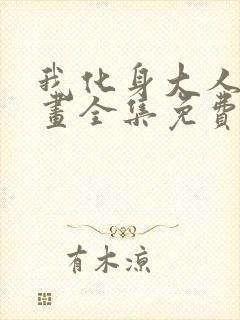 我化身大人
畫全集免費
有木涼